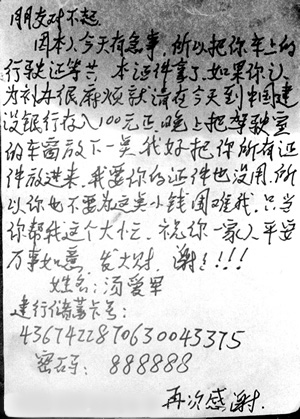 朋友对不起.
因本人今天有急事.所以把你车上的
行驶证等共 本证件拿了.如果你认
为补办很麻烦就请在今天到中国建
设银行存入100元正.晚上把驾驶室
的车窗放下一点 我好把你所有证
件放进来.我要你的证件也没用.所
以你也不要为这点小钱困难我.只当
你帮我这个大忙.祝你一家人平安
万事如意.发大财.谢谢!!!
姓名:汤爱军
建行储蓄卡号:
4367422870630043375
密码:888888
再次感谢